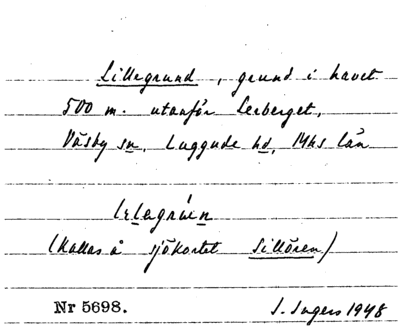 Lillegrund, grund i havet
500 m. utanför Lerberget,
Väsby sn, Luggude hd, Mhs län
(Kallas å sjökortet Sillören)
Nr 5698. I. Ingers 1948